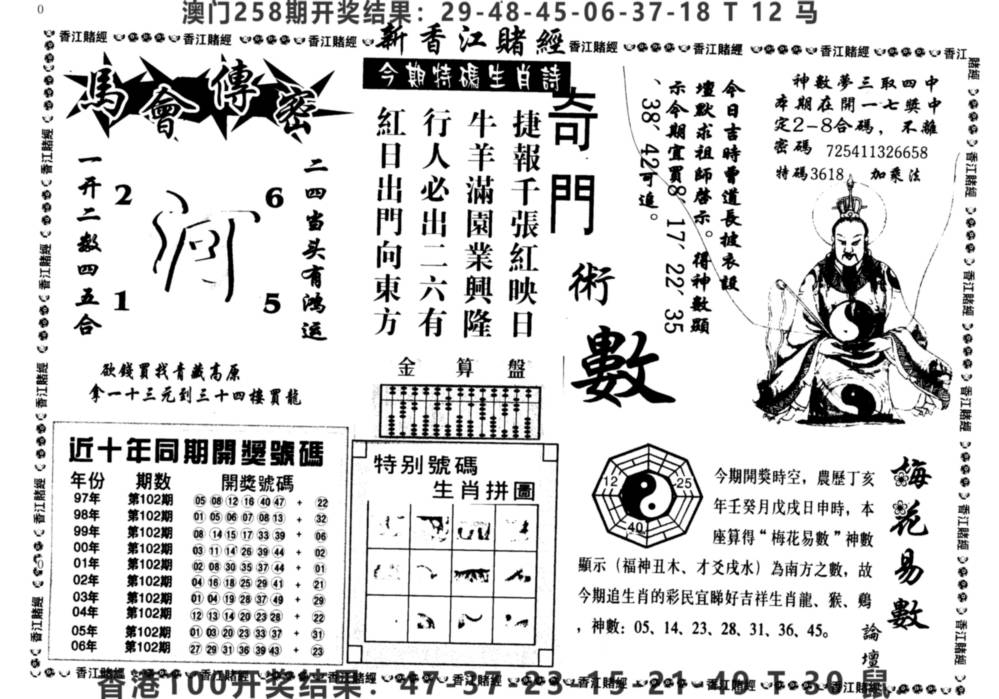 0
澳门258期开奖结果：29-48-45-06-37-18 T 12 马
新香江賭經
香江賭經 香江賭經 香江賭經 香江賭經 香江賭經 香江賭經 香江賭經 香江賭經 香江
馬會傳密
二四当头有鸿运
一开二数四五合
2 6
1 5
欲錢買找青藏高原
拿一十三元到三十四樓買龍
今期特碼生肖詩
捷報千張紅映日
牛羊滿園業興隆
行人必出二六有
紅日出門向東方
金算盤
奇門術數
今日吉時曹道長披衣設
壇默求祖師啓示。得神數顯
示今期宜買8、17、22、35
、38、42可追。
神數夢三取四中
本期在開一七獎中
定2-8合碼，不離
密碼 725411326658
特碼3618，加乘法
近十年同期開獎號碼
年份 期数 開獎號碼
97年 第102期 05 08 12 16 40 47 + 22
98年 第102期 01 05 06 07 08 13 + 32
99年 第102期 08 14 15 17 33 39 + 06
00年 第102期 03 11 14 26 39 44 + 02
01年 第102期 02 08 30 35 37 44 + 01
02年 第102期 04 16 18 25 29 41 + 21
03年 第102期 01 04 19 28 37 49 + 29
04年 第102期 12 13 14 20 23 28 + 22
05年 第102期 01 03 20 23 33 37 + 31
06年 第102期 27 29 31 36 39 43 + 23
特别號碼
生肖拼圖
12 25
40
梅花易數
論壇
今期開獎時空，農歷丁亥
年壬癸月戊戌日申時，本
座算得“梅花易數”神數
顯示（福神丑木、才爻戌水）為南方之數，故
今期追生肖的彩民宜睇好吉祥生肖龍、猴、鷄
，神數：05、14、23、28、31、36、45。
香港100开奖结果：47-37-23-15-21-49 T 30 鼠